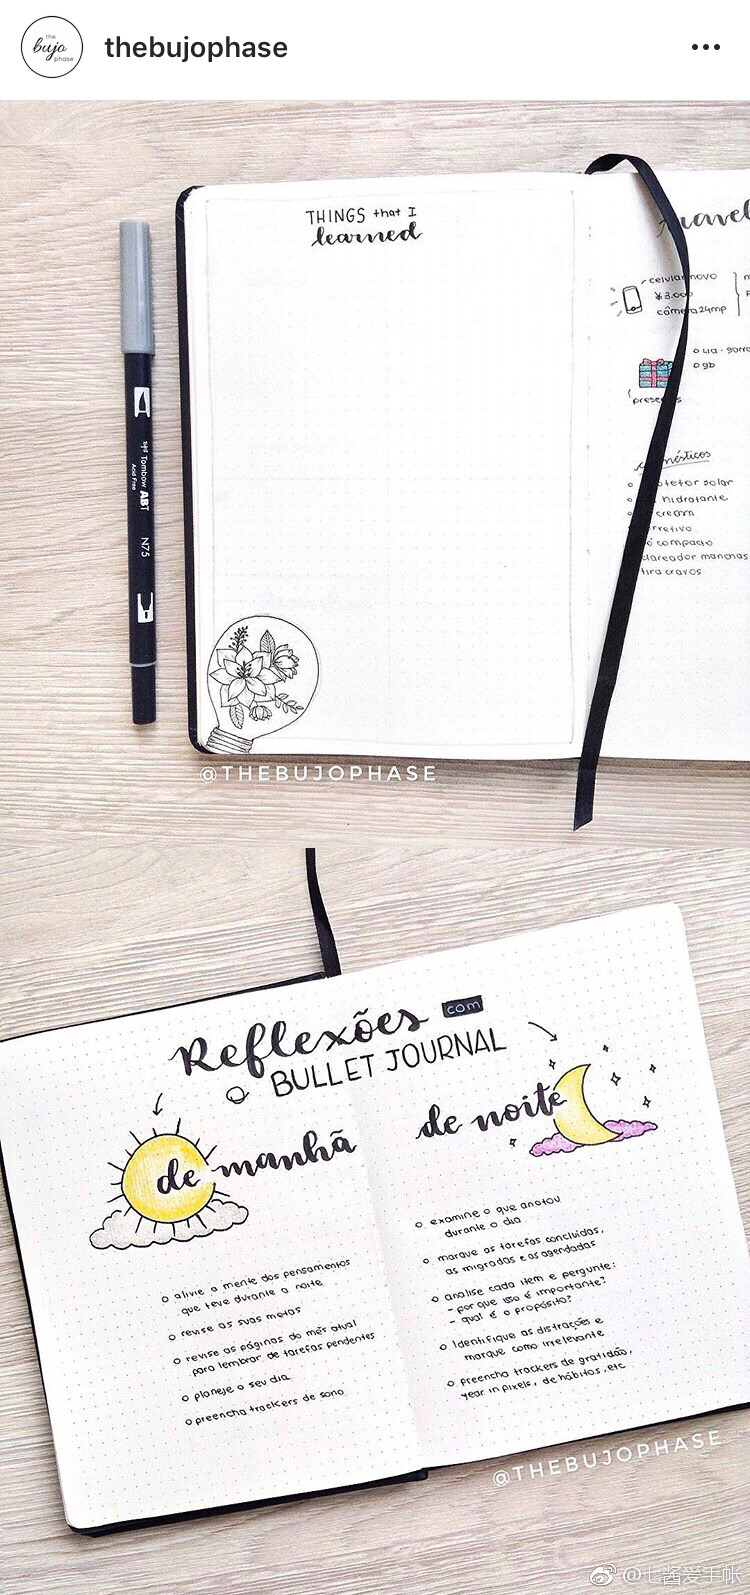 the
bujo
phase
thebujophase
THINGS that I
learned
Tombow ABT
Acid Free
N75
travel
celular novo
¥3.000
câmera 24mp
presentes
cosméticos
protetor solar
hidratante
cream
corretivo
pó compacto
clareador manchas
tira cravos
@THEBUJOPHASE
Reflexões com
o BULLET JOURNAL
de manhã
alivie a mente dos pensamentos
que teve durante a noite
revise as suas metas
revise as páginas do mês atual
para lembrar de tarefas pendentes
planeje o seu dia
preencha trackers de sono
de noite
examine o que anotou
durante o dia
marque as tarefas concluídas,
as migradas e as agendadas
analise cada item e pergunte:
- por que isso é importante?
- qual é o propósito?
identifique as distrações e
marque como irrelevante
preencha trackers de gratidão,
year in pixels, de hábitos, etc
@THEBUJOPHASE
@七酱爱手帐